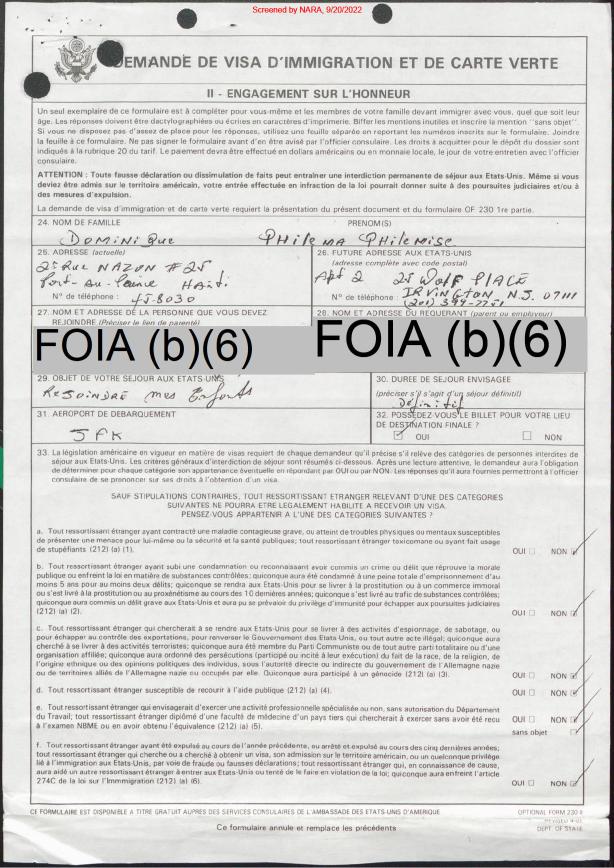 Screened by NARA, 9/20/2022
DEMANDE DE VISA D'IMMIGRATION ET DE CARTE VERTE
II - ENGAGEMENT SUR L'HONNEUR
Un seul exemplaire de ce formulaire est à compléter pour vous-même et les membres de votre famille devant immigrer avec vous, quel que soit leur
âge. Les réponses doivent être dactylographiées ou écrites en caractères d'imprimerie. Biffer les mentions inutiles et inscrire la mention "sans objet".
Si vous ne disposez pas d'assez de place pour les réponses, utilisez une feuille séparée en reportant les numéros inscrits sur le formulaire. Joindre
la feuille à ce formulaire. Ne pas signer le formulaire avant d'en être avisé par l'officier consulaire. Les droits à acquitter pour le dépôt du dossier sont
indiqués à la rubrique 20 du tarif. Le paiement devra être effectué en dollars américains ou en monnaie locale, le jour de votre entretien avec l'officier
consulaire.
ATTENTION : Toute fausse déclaration ou dissimulation de faits peut entraîner une interdiction permanente de séjour aux Etats-Unis. Même si vous
deviez être admis sur le territoire américain, votre entrée effectuée en infraction de la loi pourrait donner suite à des poursuites judiciaires et/ou à
des mesures d'expulsion.
La demande de visa d'immigration et de carte verte requiert la présentation du présent document et du formulaire OF 230 1re partie.
24. NOM DE FAMILLE PRENOM(S)
DOMINIQUE PHILEMA PHILEMISE
25. ADRESSE (actuelle)
25 Rue NAZON # 25
Port-Au-Prince Haiti
N° de téléphone : 45-8030
26. FUTURE ADRESSE AUX ETATS-UNIS
(adresse complète avec code postal)
Apt 2 25 Wolf PLACE
IRVINGTON N.J. 07111
N° de téléphone : (201) 399-7751
27. NOM ET ADRESSE DE LA PERSONNE QUE VOUS DEVEZ
REJOINDRE (Préciser le lien de parenté)
28. NOM ET ADRESSE DU REQUERANT (parent ou employeur)
FOIA (b)(6)
FOIA (b)(6)
29. OBJET DE VOTRE SEJOUR AUX ETATS-UNIS
Rejoindre mes Enfants
30. DUREE DE SEJOUR ENVISAGEE
(préciser s'il s'agit d'un séjour définitif)
Définitif
31. AEROPORT DE DEBARQUEMENT
JFK
32. POSSEDEZ-VOUS LE BILLET POUR VOTRE LIEU
DE DESTINATION FINALE ?
OUI NON
33. La législation américaine en vigueur en matière de visas requiert de chaque demandeur qu'il précise s'il relève des catégories de personnes interdites de
séjour aux Etats-Unis. Les critères généraux d'interdiction de séjour sont résumés ci-dessous. Après une lecture attentive, le demandeur aura l'obligation
de déterminer pour chaque catégorie son appartenance éventuelle en répondant par OUI ou par NON. Les réponses qu'il aura fournies permettront à l'officier
consulaire de se prononcer sur ses droits à l'obtention d'un visa.
SAUF STIPULATIONS CONTRAIRES, TOUT RESSORTISSANT ETRANGER RELEVANT D'UNE DES CATEGORIES
SUIVANTES NE POURRA ETRE LEGALEMENT HABILITE A RECEVOIR UN VISA.
PENSEZ-VOUS APPARTENIR A L'UNE DES CATEGORIES SUIVANTES ?
a. Tout ressortissant étranger ayant contracté une maladie contagieuse grave, ou atteint de troubles physiques ou mentaux susceptibles
de présenter une menace pour lui-même ou la sécurité et la santé publiques; tout ressortissant étranger toxicomane ou ayant fait usage
de stupéfiants (212) (a) (1).
OUI NON
b. Tout ressortissant étranger ayant subi une condamnation ou reconnaissant avoir commis un crime ou délit que réprouve la morale
publique ou enfreint la loi en matière de substances contrôlées; quiconque aura été condamné à une peine totale d'emprisonnement d'au
moins 5 ans pour au moins deux délits; quiconque se rendra aux Etats-Unis pour se livrer à la prostitution ou à un commerce immoral
ou s'est livré à la prostitution ou au proxénétisme au cours des 10 dernières années; quiconque s'est livré au trafic de substances contrôlées;
quiconque aura commis un délit grave aux Etats-Unis et aura pu se prévaloir du privilège d'immunité pour échapper aux poursuites judiciaires
(212) (a) (2).
OUI NON
c. Tout ressortissant étranger qui chercherait à se rendre aux Etats-Unis pour se livrer à des activités d'espionnage, de sabotage, ou
pour échapper au contrôle des exportations, pour renverser le Gouvernement des Etats-Unis, ou tout autre acte illégal; quiconque aura
cherché à se livrer à des activités terroristes; quiconque aura été membre du Parti Communiste ou de tout autre parti totalitaire ou d'une
organisation affiliée; quiconque aura ordonné des persécutions (participé ou incité à leur exécution) du fait de la race, de la religion, de
l'origine ethnique ou des opinions politiques des individus, sous l'autorité directe ou indirecte du gouvernement de l'Allemagne nazie
ou de territoires alliés de l'Allemagne nazie ou occupés par elle. Quiconque aura participé à un génocide (212) (a) (3).
OUI NON
d. Tout ressortissant étranger susceptible de recourir à l'aide publique (212) (a) (4).
OUI NON
e. Tout ressortissant étranger qui envisagerait d'exercer une activité professionnelle spécialisée ou non, sans autorisation du Département
du Travail; tout ressortissant étranger diplomé d'une faculté de médecine d'un pays tiers qui chercherait à exercer sans avoir été reçu
à l'examen NBME ou en avoir obtenu l'équivalence (212) (a) (5).
OUI NON
sans objet
f. Tout ressortissant ayant été expulsé au cours de l'année précédente, ou arrêté et expulsé au cours des cinq dernières années;
tout ressortissant étranger qui cherche ou a cherché à obtenir un visa, son admission sur le territoire américain, ou un quelconque privilège
lié à l'immigration aux Etats-Unis, par voie de fraude ou fausses déclarations; tout ressortissant étranger qui, en connaissance de cause,
aura aidé un autre ressortissant étranger à entrer aux Etats-Unis ou tenté de le faire en violation de la loi; quiconque aura enfreint l'article
274C de la loi sur l'Immmigration (212) (a) (6).
OUI NON
CE FORMULAIRE EST DISPONIBLE A TITRE GRATUIT AUPRES DES SERVICES CONSULAIRES DE L'AMBASSADE DES ETATS-UNIS D'AMERIQUE
OPTIONAL FORM 230 II
DEPT. OF STATE
Ce formulaire annule et remplace les précédents